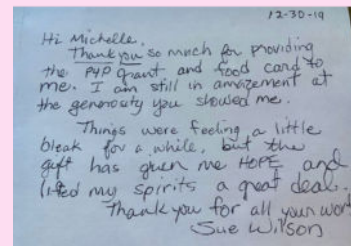 12-30-19
Hi Michelle,
Thank you so much for providing
the P4P grant and food card to
me. I am still in amazement at
the generosity you showed me.
Things were feeling a little
bleak for a while, but the
gift has given me HOPE and
lifted my spirits a great deal.
Thank you for all your work
Sue Wilson